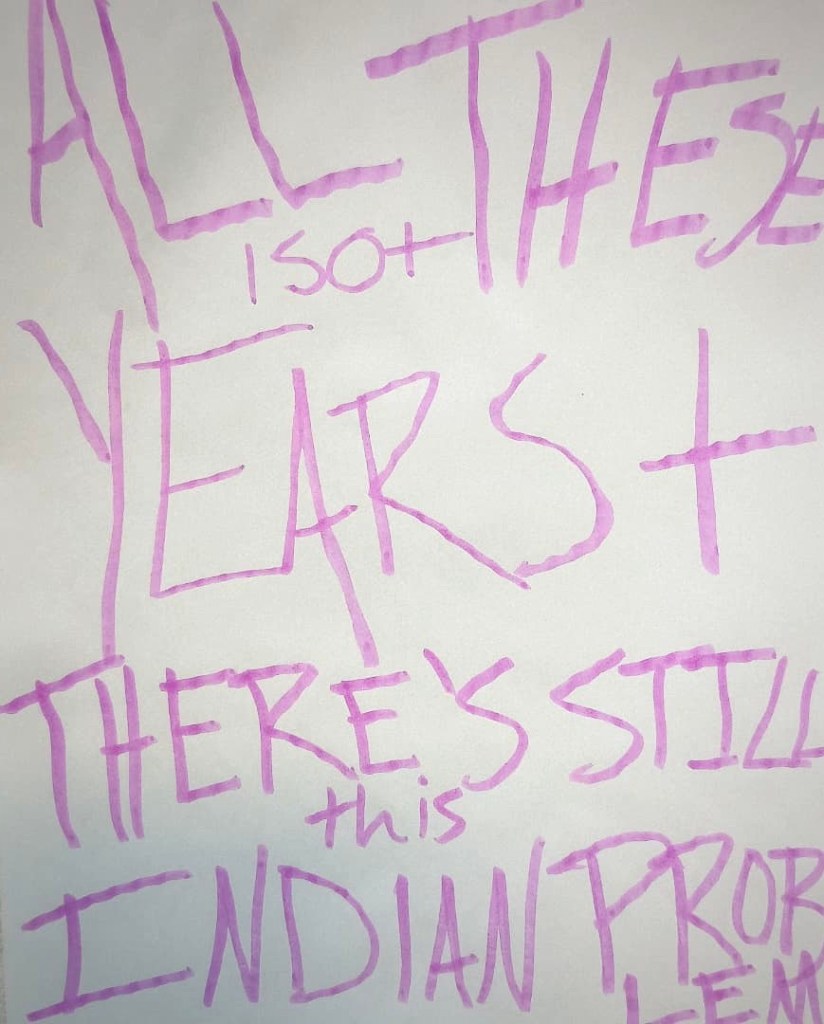 ALL THESE
150+
YEARS +
THERE'S STILL
this
INDIAN PROB
LEM